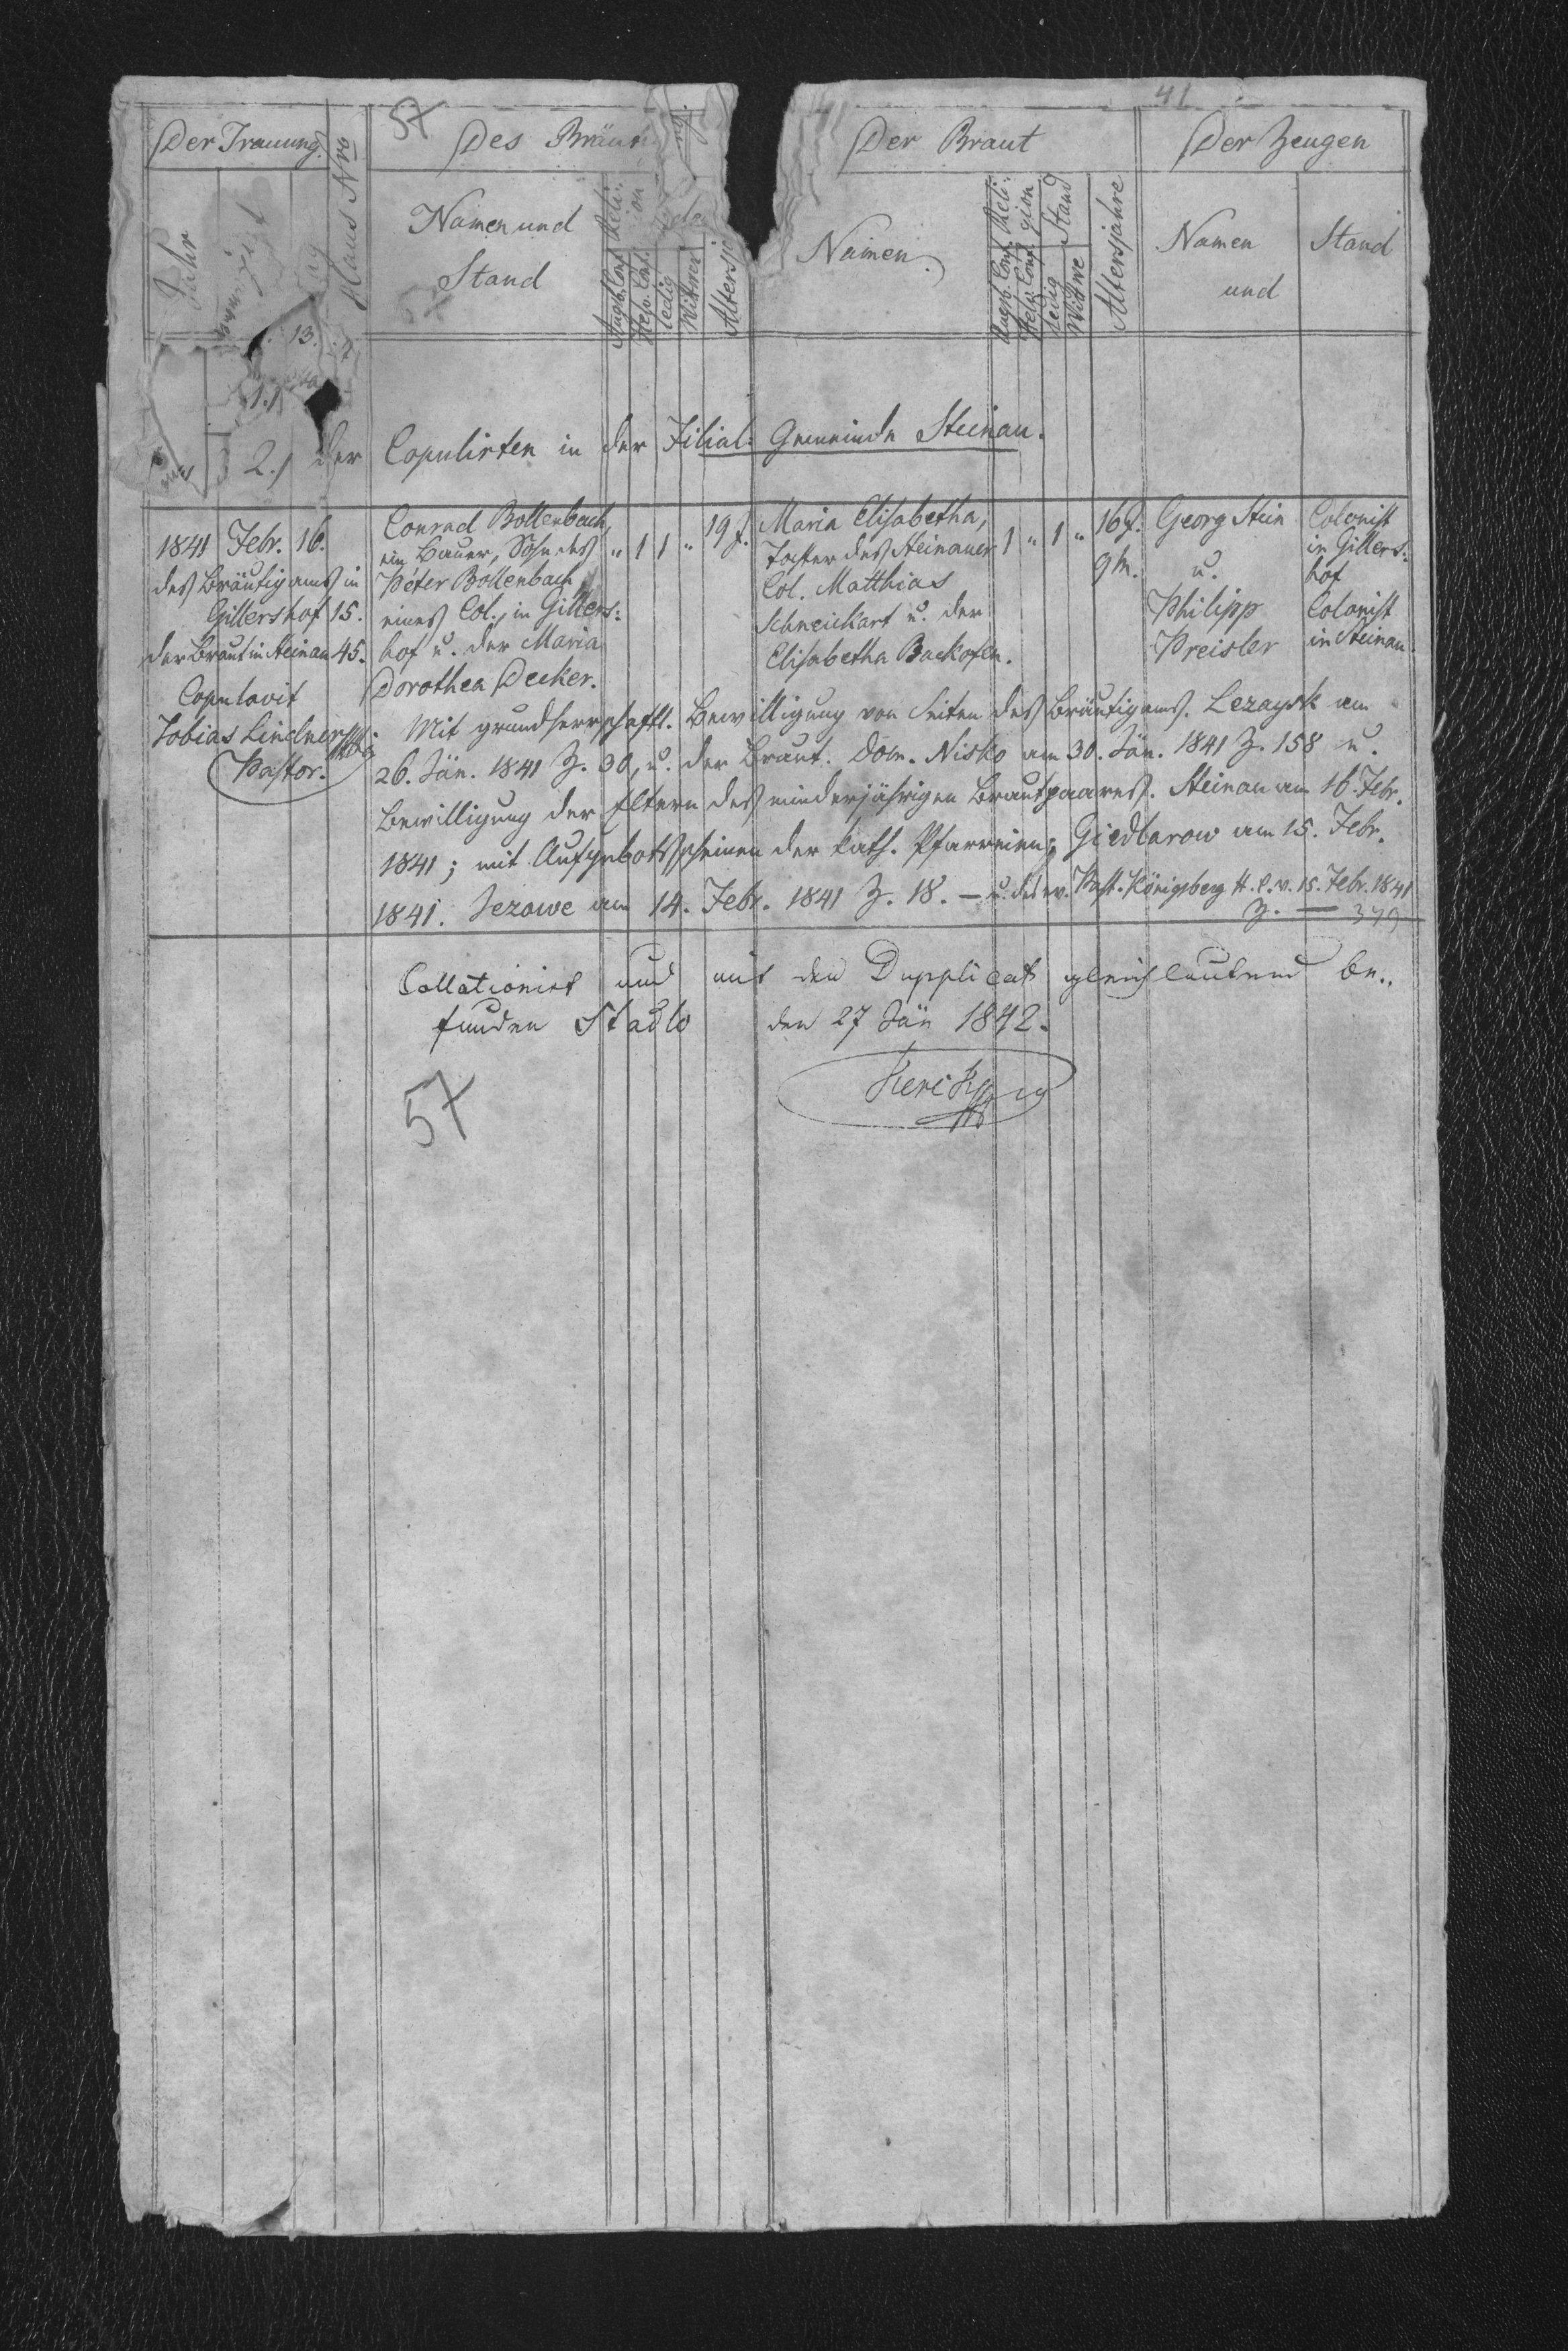 41
57
Der Trauung.
Haus Nro
Des Bräut
Der Braut
Der Zeugen
Jahr
Namen und
Stand
Reli:
Augsb. Conf.
Helv. Conf.
ledig
Witwer
Altersj
Namen.
Reli:
gion
Augsb. Conf.
Helv. Conf.
Stand
ledig
Wittwe
Altersjahre
Namen
und
Stand
13.
1.1
2.) der Copulirten in der Filial: Gemeinde Steinau.
1841 Febr. 16.
des Bräutigams in
Gillershof 15.
der Braut in Steinau 45.
Copulavit
Tobias Lindner
Pastor.
Conrad Bollenbach,
ein Bauer, Sohn des
Peter Bollenbach,
eines Col. in Gillers:
hof u. der Maria
Dorothea Decker.
" 1 1 " 19 J.
Maria Elisabetha,
Tochter des Steinauer
Col. Matthias
Schneickart u. der
Elisabetha Backofen.
1 " 1 " 16 J.
9 M.
Georg Stein
u.
Philipp
Preisler
Colonist
in Gillers:
hof
Colonist
in Steinau
Mit grundherrschaftl. Bewilligung von Seiten des Bräutigams. Lezaysk am
26. Jän. 1841 Z. 30, u. der Braut. Dom. Nisko am 30. Jän. 1841 Z. 158 u.
Bewilligung der Eltern des minderjährigen Brautpaares. Steinau am 16. Febr.
1841; mit Aufgebotsscheinen der kath. Pfarreien; Giedlarow am 15. Febr.
1841. Jezowe am 14. Febr. 1841 Z. 18. — u. des ev. Past. Königsberg H. C. v. 15. Febr. 1841
Z. — 379
Collationirt und mit den Dupplicat gleichlautend be..
funden Stadlo den 27 Jän 1842.
57